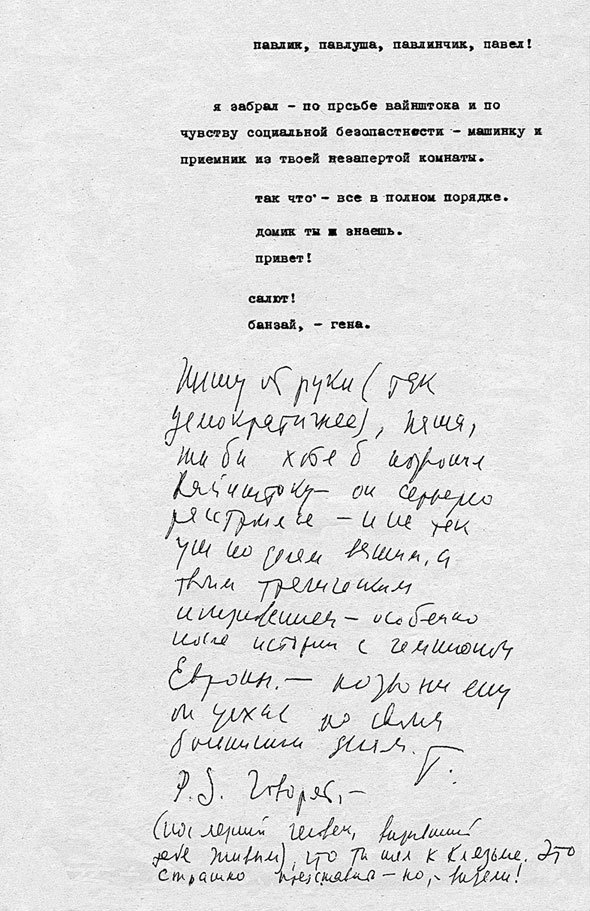 павлик, павлуша, павлинчик, павел!
я забрал – по прсьбе вайнштока и по
чувству социальной безопастности – машинку и
приемник из твоей незапертой комнаты.
так что – все в полном порядке.
домик ты ж знаешь.
привет!
салют!
банзай, – гена.
Пишу от руки (так
демократичнее), Паша,
ты бы хоть б позвонил
Вайнштоку – он серьезно
расстроился – и не так
уж по делам вашим, а
твоим трагическим
исчезновением – особенно
после истории с чемпионом
Европы. – позвони ему
он уехал по своим
большим делам. Г.
P.S. Говорят, –
(последний человек, видевший
тебя живым), что ты шел к Клязьме. Это
страшно представить – но, – видели!